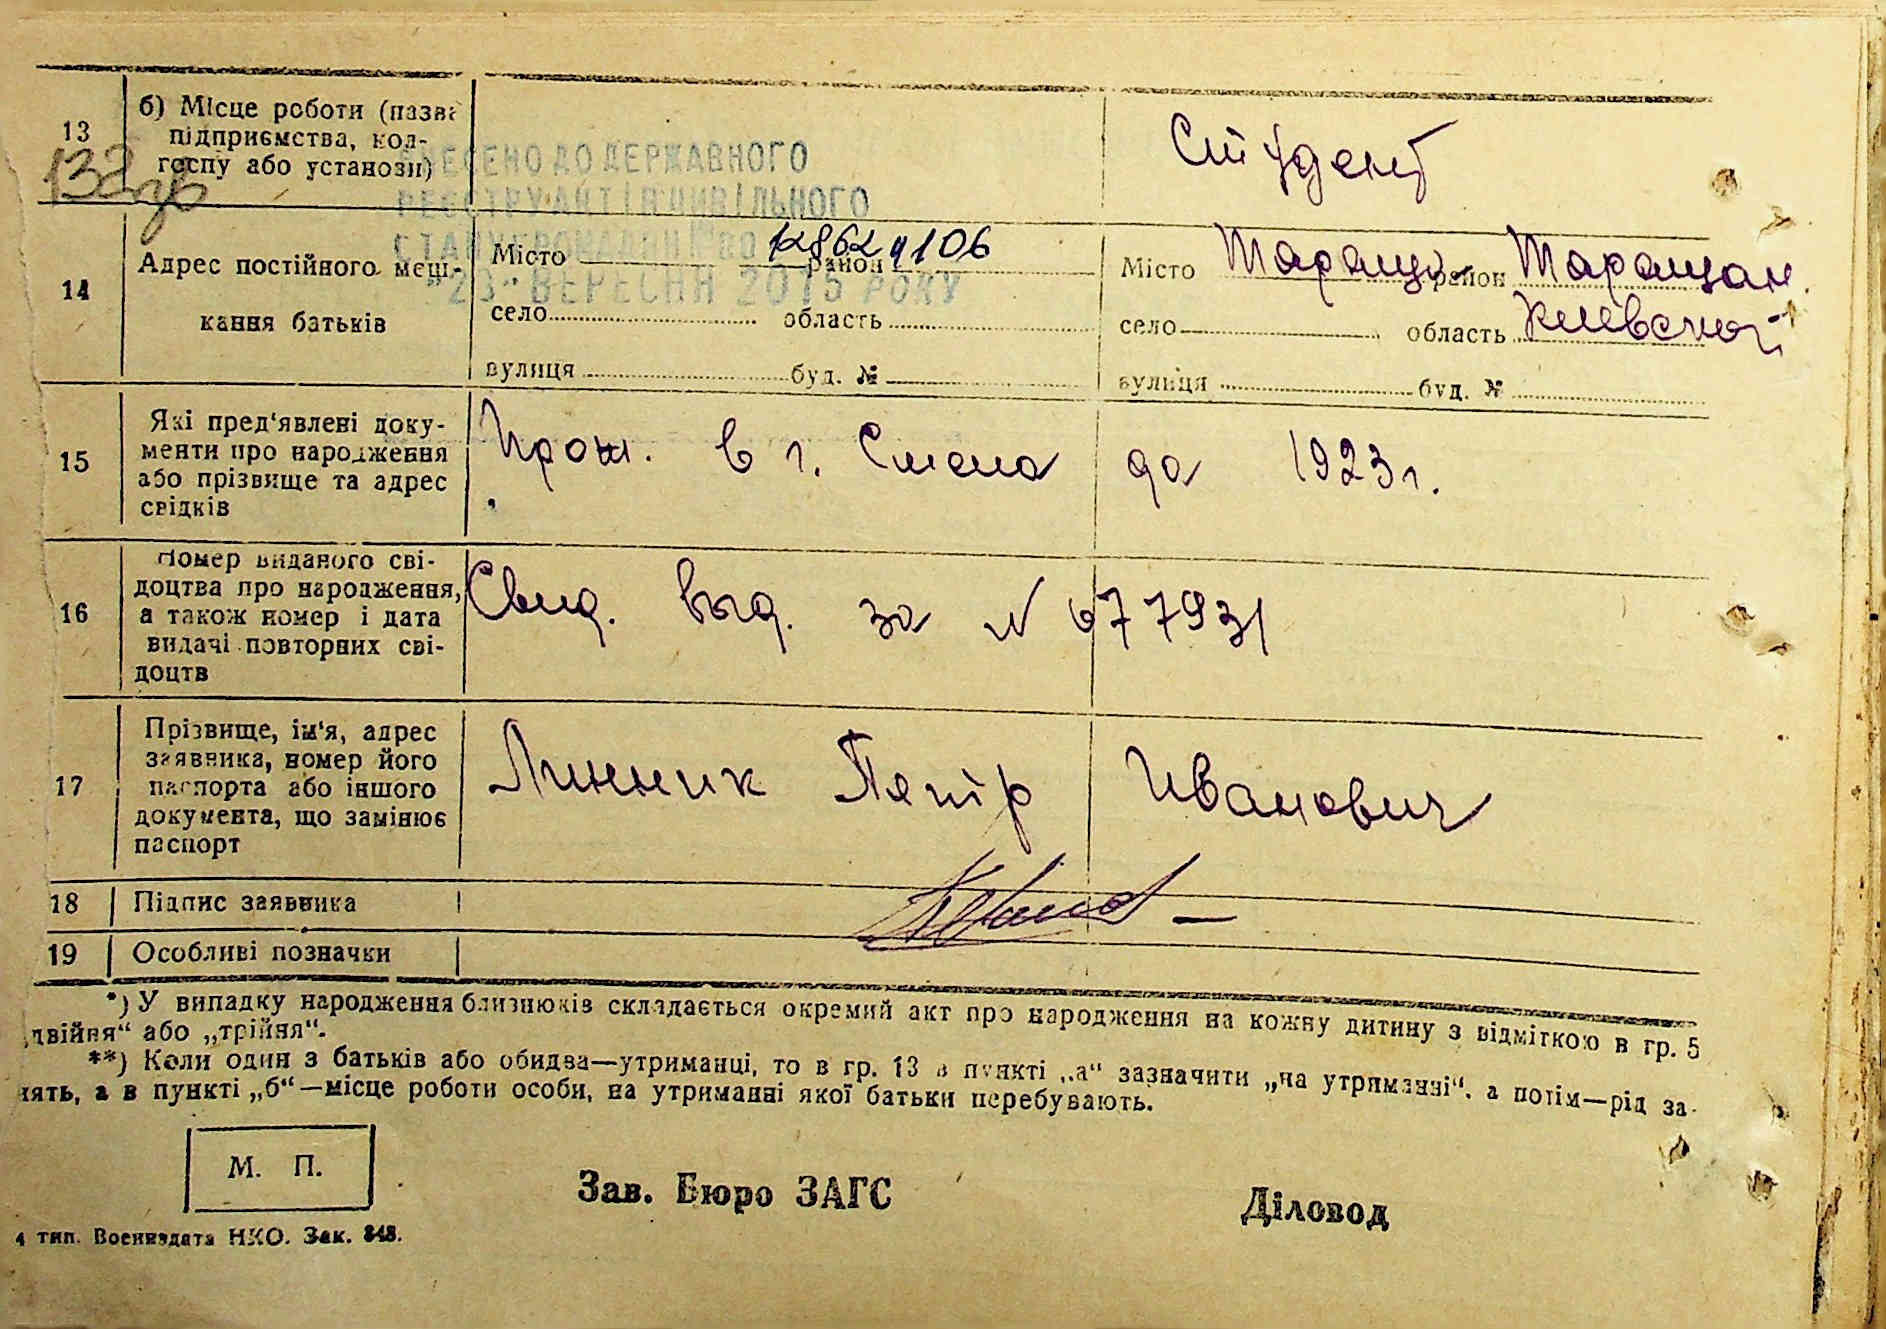 13
б) Місце роботи (назва
підприємства, кол-
госпу або установи)
Студент
ВНЕСЕНО ДО ДЕРЖАВНОГО
РЕЄСТРУ АКТІВ ЦИВІЛЬНОГО
СТАНУ ГРОМАДЯН
"23" ВЕРЕСНЯ 2015 РОКУ
14
Адрес постійного меш-
кання батьків
Місто район
село область
вулиця буд. №
Місто Тараща район Таращан.
село область Киевской
вулиця буд. №
15
Які пред'явлені доку-
менти про народження
або прізвище та адрес
свідків
Прож. в г. Смела до 1923 г.
16
Номер виданого сві-
доцтва про народження,
а також номер і дата
видачі повторних сві-
доцтв
Свид. выд. за № 677931
17
Прізвище, ім'я, адрес
заявника, номер його
паспорта або іншого
документа, що замінює
паспорт
Линник Петр Иванович
18
Підпис заявника
19
Особливі позначки
*) У випадку народження близнюків складається окремий акт про народження на кожну дитину з відміткою в гр. 5
двійня" або „трійня".
**) Коли один з батьків або обидва—утриманці, то в гр. 13 в пункті „а" зазначити „на утриманні", а потім—рід за-
нять, а в пункті „б"—місце роботи особи, на утриманні якої батьки перебувають.
М. П.
Зав. Бюро ЗАГС
Діловод
4 тип. Воениздата НКО. Зак. 848.